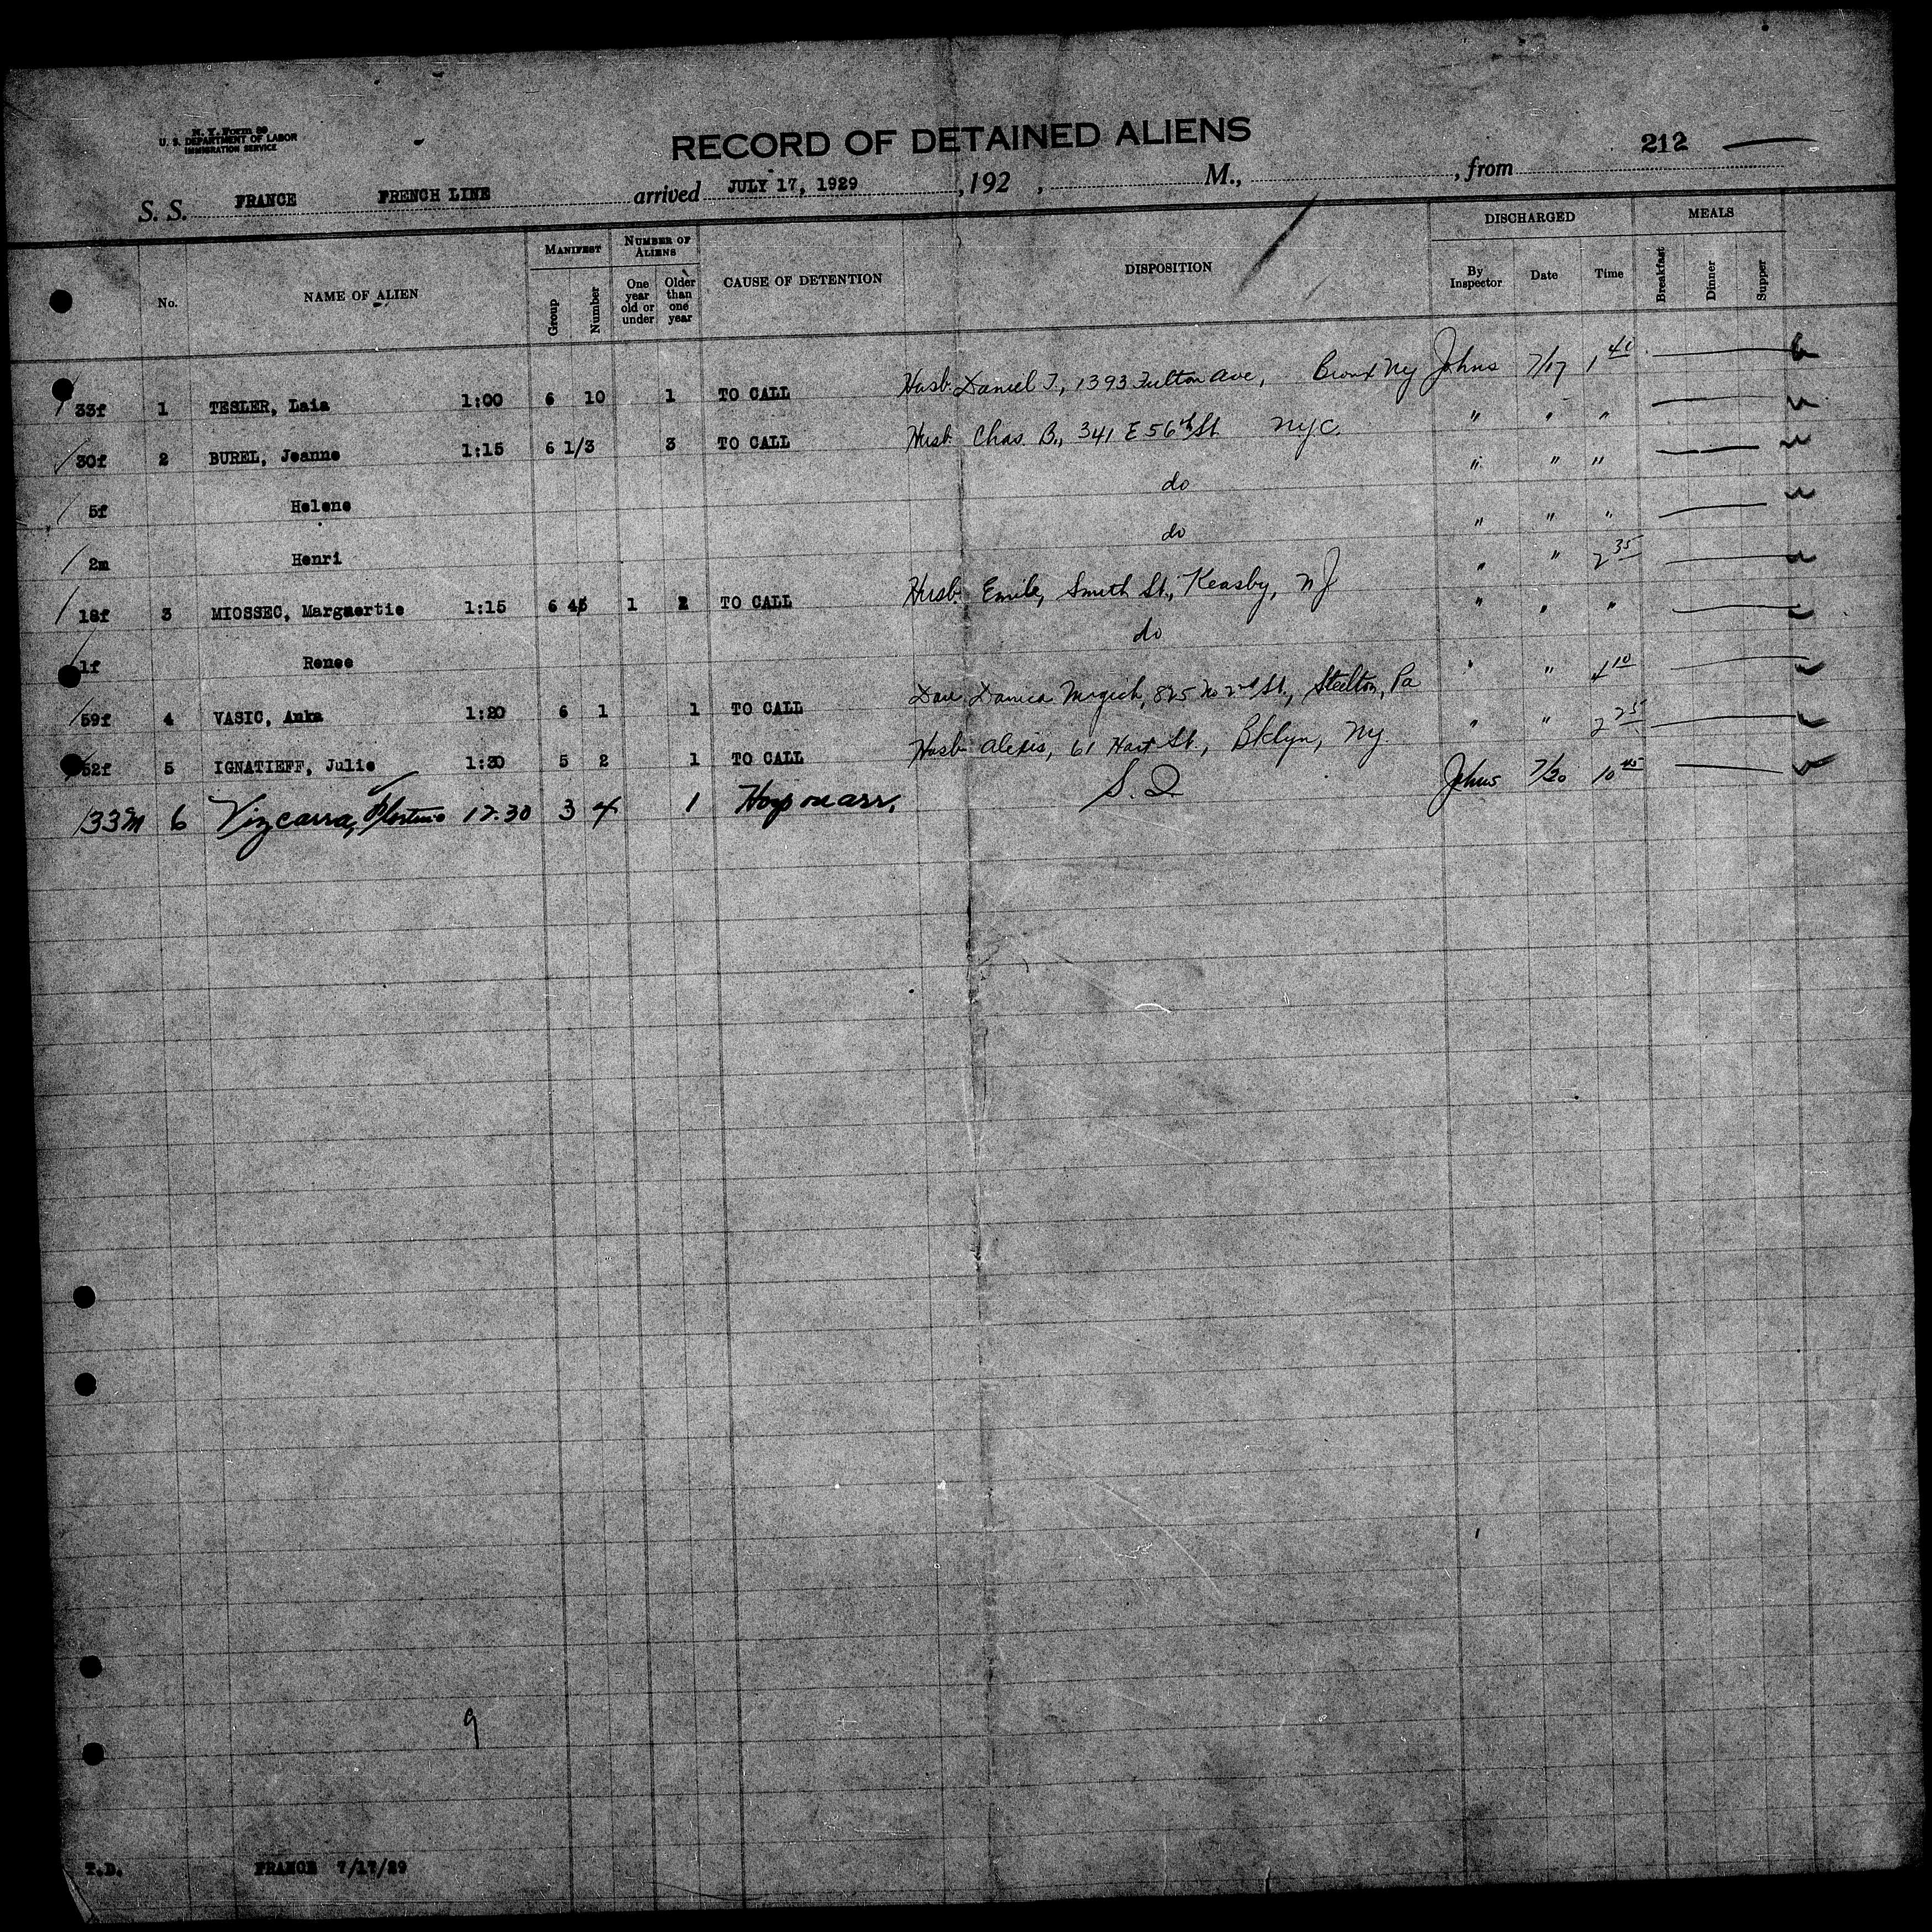 N. Y. Form 89
U. S. DEPARTMENT OF LABOR
IMMIGRATION SERVICE
RECORD OF DETAINED ALIENS
212
S. S. FRANCE FRENCH LINE arrived JULY 17, 1929, 192 , M., , from
No.
NAME OF ALIEN
MANIFEST
Group
Number
NUMBER OF ALIENS
One year old or under
Older than one year
CAUSE OF DETENTION
DISPOSITION
DISCHARGED
By Inspector
Date
Time
MEALS
Breakfast
Dinner
Supper
33f 1 TESLER, Laia 1:00 6 10 1 TO CALL Husb. Daniel T., 1393 Fulton Ave, Bronx NY Johns 7/17 1 40
30f 2 BUREL, Jeanne 1:15 6 1/3 3 TO CALL Husb. Chas B., 341 E 56th St. NYC. " " "
5f Helene do " " "
2m Henri do " " "
18f 3 MIOSSEC, Marguertie 1:15 6 45 1 TO CALL Husb. Emile, Smith St., Keasby, NJ " " 2 35
1f Renee do " " "
59f 4 VASIC, Anka 1:20 6 1 1 TO CALL Dau. Danica 825 No 2nd St., Steelton, Pa " " 4 10
52f 5 IGNATIEFF, Julie 1:30 5 2 1 TO CALL Husb. Alexis, 61 Hart St., Bklyn, NY " " 2 35
33m 6 Vizcarra, 12.30 3 4 1 Hosp on arr. S. I. Johns 7/20 10 45
9
T.D. FRANCE 7/17/29